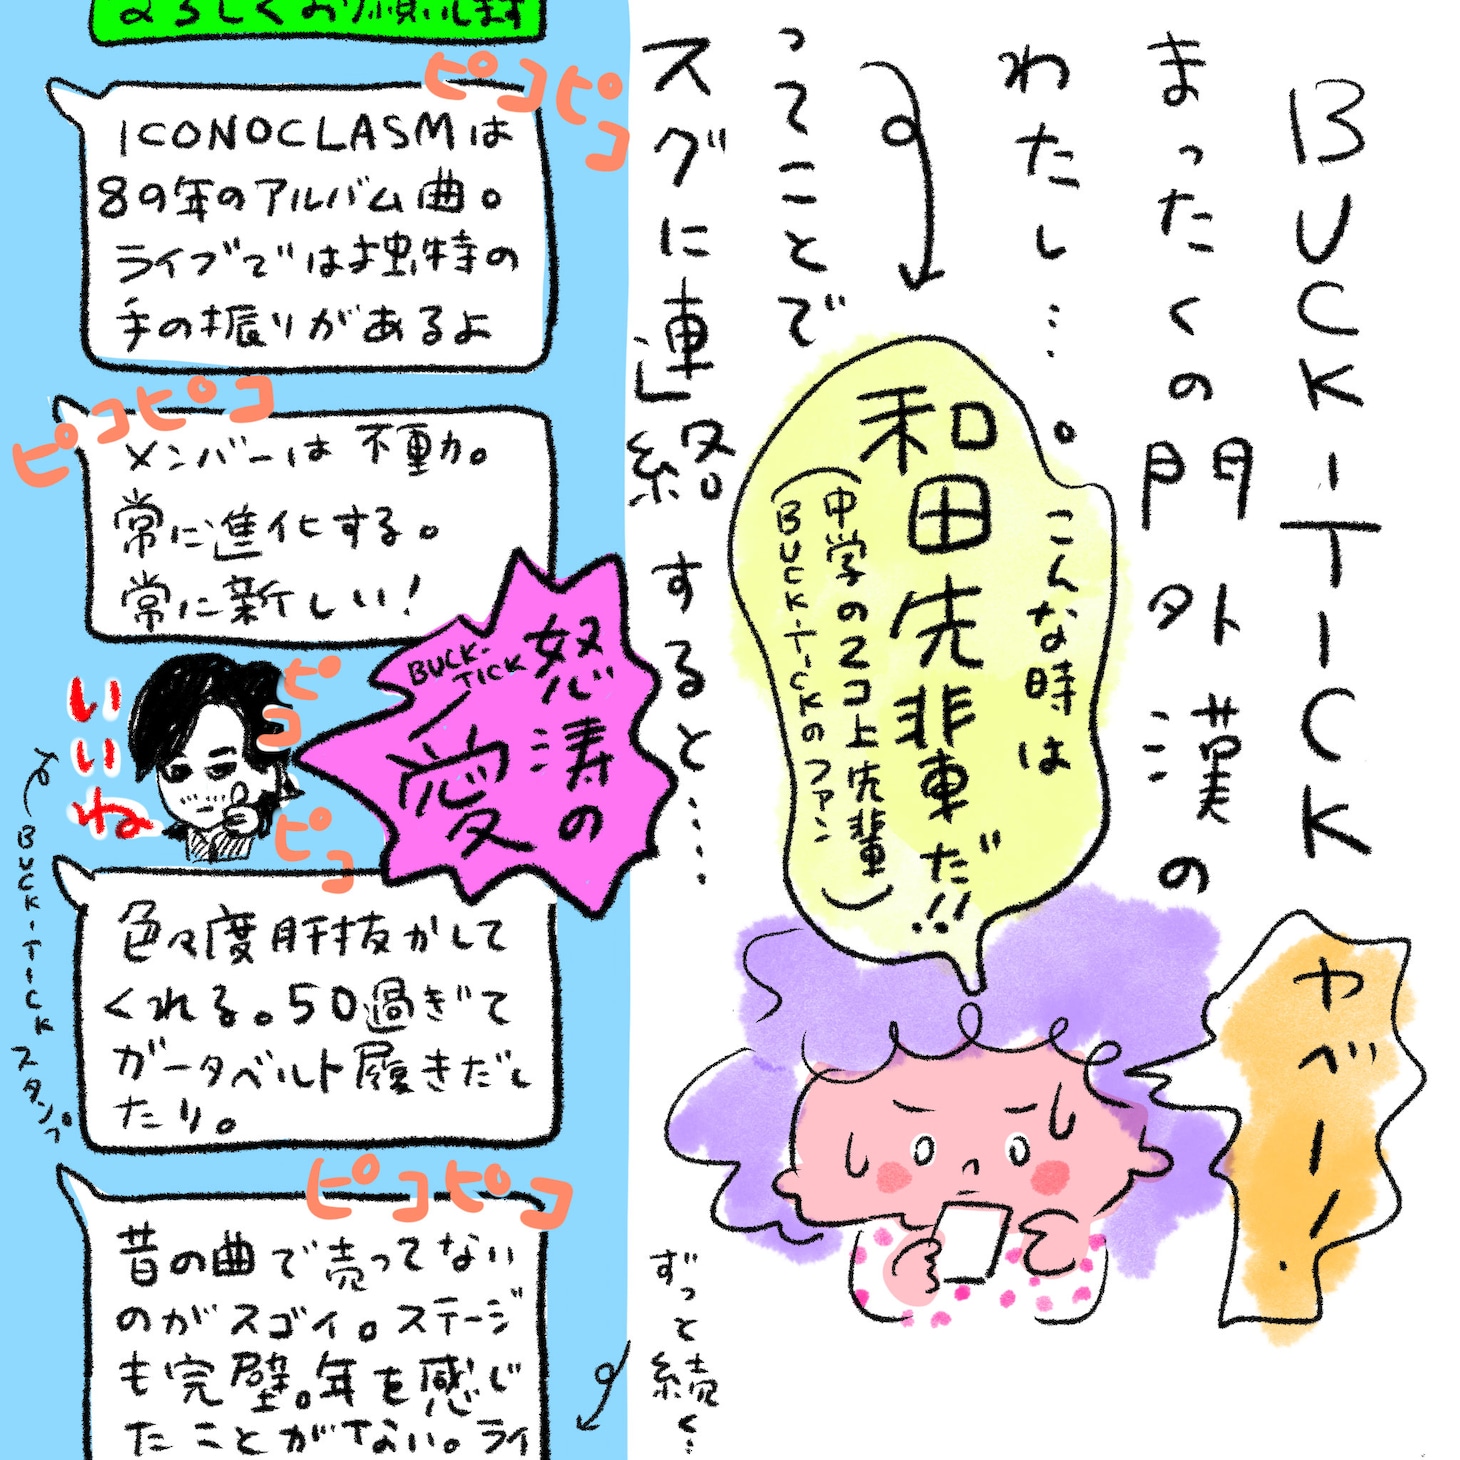 BUCK-TICK
まったくの門外漢の
わたし…。
ヤベー！
こんな時は
和田先輩だ!!
(中学の2コ上先輩
BUCK-TICKのファン)
ってことで
スグに連絡すると……
よろしくお願いします
ピコピコ
ICONOCLASMは
89年のアルバム曲。
ライブでは独特の
手の振りがあるよ
ピコピコ
メンバーは不動。
常に進化する。
常に新しい！
怒涛の
BUCK-TICK
愛
いいね
ピコ
ピコ
BUCK-TICKスタンプ
色々度肝抜かして
くれる。50過ぎて
ガータベルト履きだし
たり。
ピコピコ
昔の曲で売ってない
のがスゴイ。ステージ
も完璧。年を感じ
たことがない。ライ
ずっと続く…